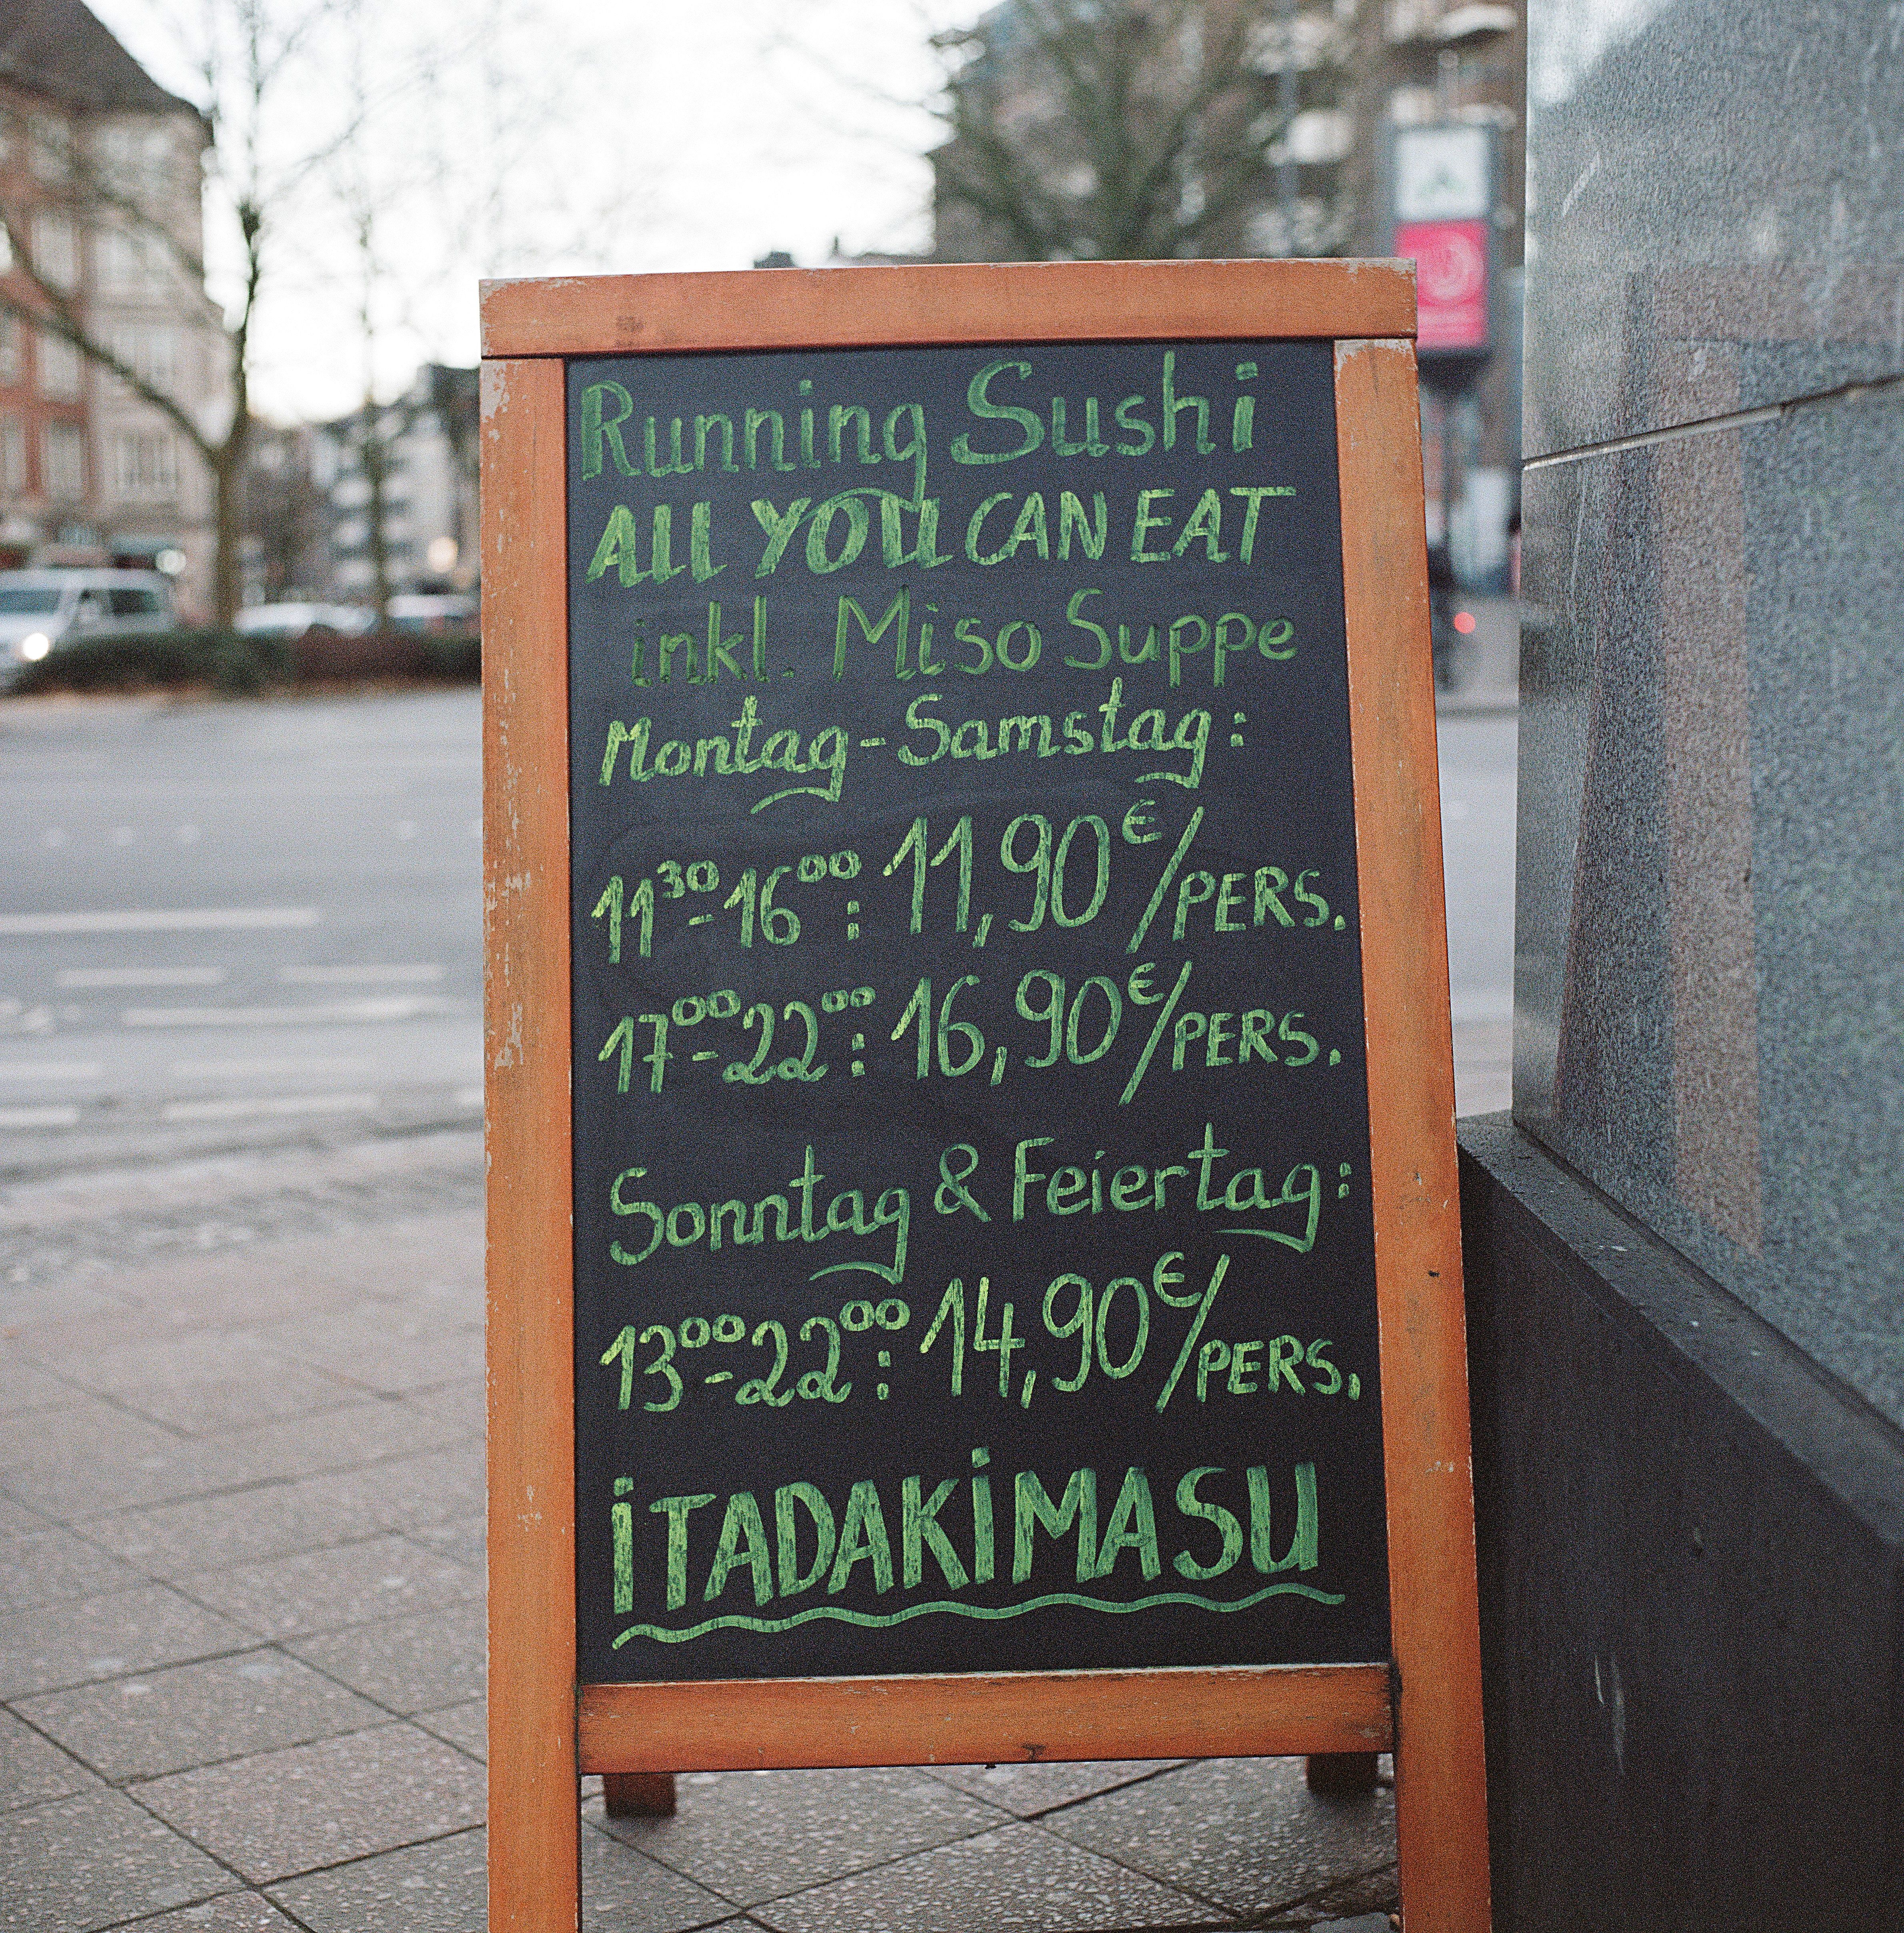 Running Sushi
ALL YOU CAN EAT
inkl. Miso Suppe
Montag-Samstag:
11³⁰-16⁰⁰: 11,90€/PERS.
17⁰⁰-22⁰⁰: 16,90€/PERS.
Sonntag & Feiertag:
13⁰⁰-22⁰⁰: 14,90€/PERS.
iTADAKiMASU